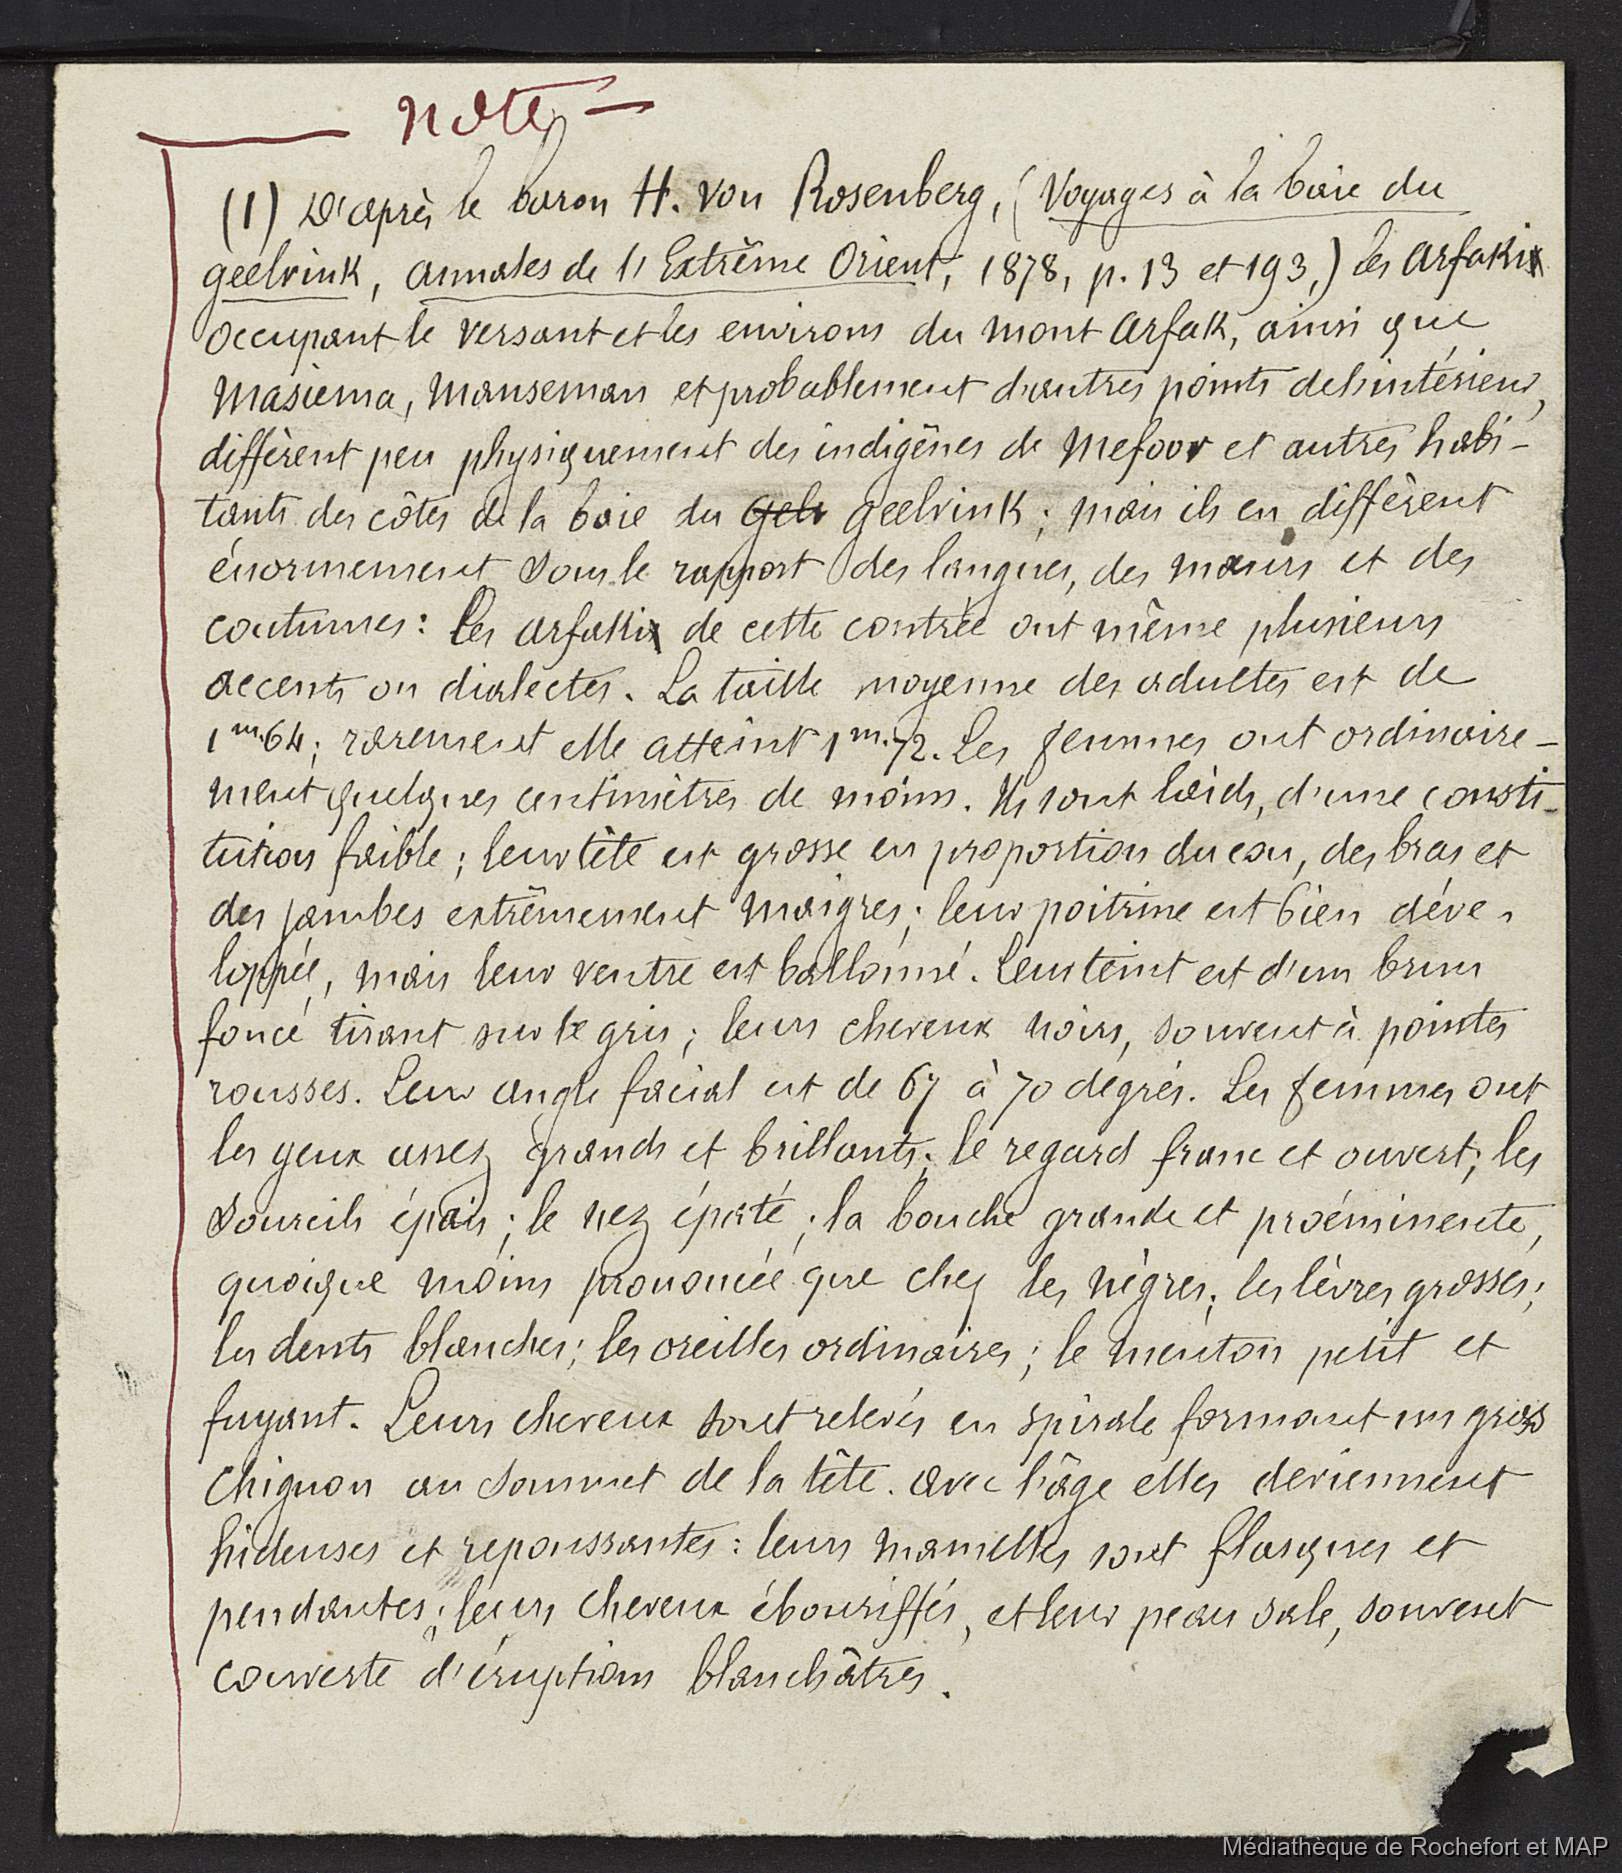 Note —
(1) D'après le baron H. von Rosenberg, (Voyages à la baie du
geelvink, annales de l'Extrême Orient, 1878, p. 13 et 193,) les Arfakis
occupant le versant et les environs du mont Arfak, ainsi que
Masiema, Manseman et probablement d'autres points de l'intérieur,
diffèrent peu physiquement des indigènes de Mefoor et autres habi-
tants des côtes de la baie du Gelv geelvink ; mais ils en diffèrent
énormement sous le rapport des langues, des mœurs et des
coutumes : Les arfakis de cette contrée ont même plusieurs
accents ou dialectes. La taille moyenne des adultes est de
1m.64 ; rarement elle atteint 1m.72. Les femmes ont ordinaire-
ment quelques centimètres de moins. Ils sont laids, d'une consti-
tution faible ; leur tête est grosse en proportion du cou, des bras et
des jambes extrêmement maigres ; leur poitrine est bien déve-
loppée, mais leur ventre est ballonné. Leur teint est d'un brun
foncé tirant sur le gris ; leurs cheveux noirs, souvent à pointes
rousses. Leur angle facial est de 67 à 70 degrés. Les femmes ont
les yeux assez grands et brillants ; le regard franc et ouvert ; les
sourcils épais ; le nez épaté ; la bouche grande et proéminente,
quoique moins prononcée que chez les nègres ; les lèvres grosses ;
les dents blanches ; les oreilles ordinaires ; le menton petit et
fuyant. Leurs cheveux sont relevés en spirale formant un gros
chignon au sommet de la tête. avec l'âge elles deviennent
hideuses et repoussantes : leurs mamelles sont flasques et
pendantes ; leurs cheveux ébouriffés, et leur peau sale, souvent
couverte d'éruptions blanchâtres.
Médiathèque de Rochefort et MAP